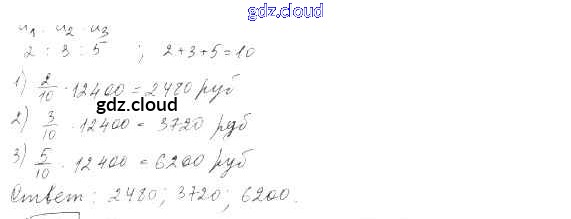 gdz.cloud
ч1 : ч2 : ч3
2 : 3 : 5 ; 2+3+5=10
1) 2/10 · 12400 = 2480 руб
gdz.cloud
2) 3/10 · 12400 = 3720 руб
3) 5/10 · 12400 = 6200 руб
Ответ: 2480; 3720; 6200.